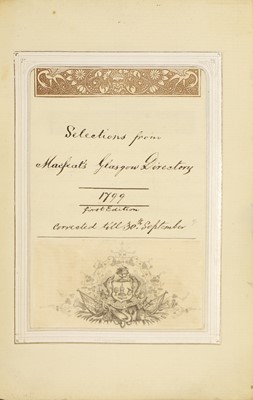 Selections from
Macfeat's Glasgow Directory
1799
First Edition
Corrected till 30th September